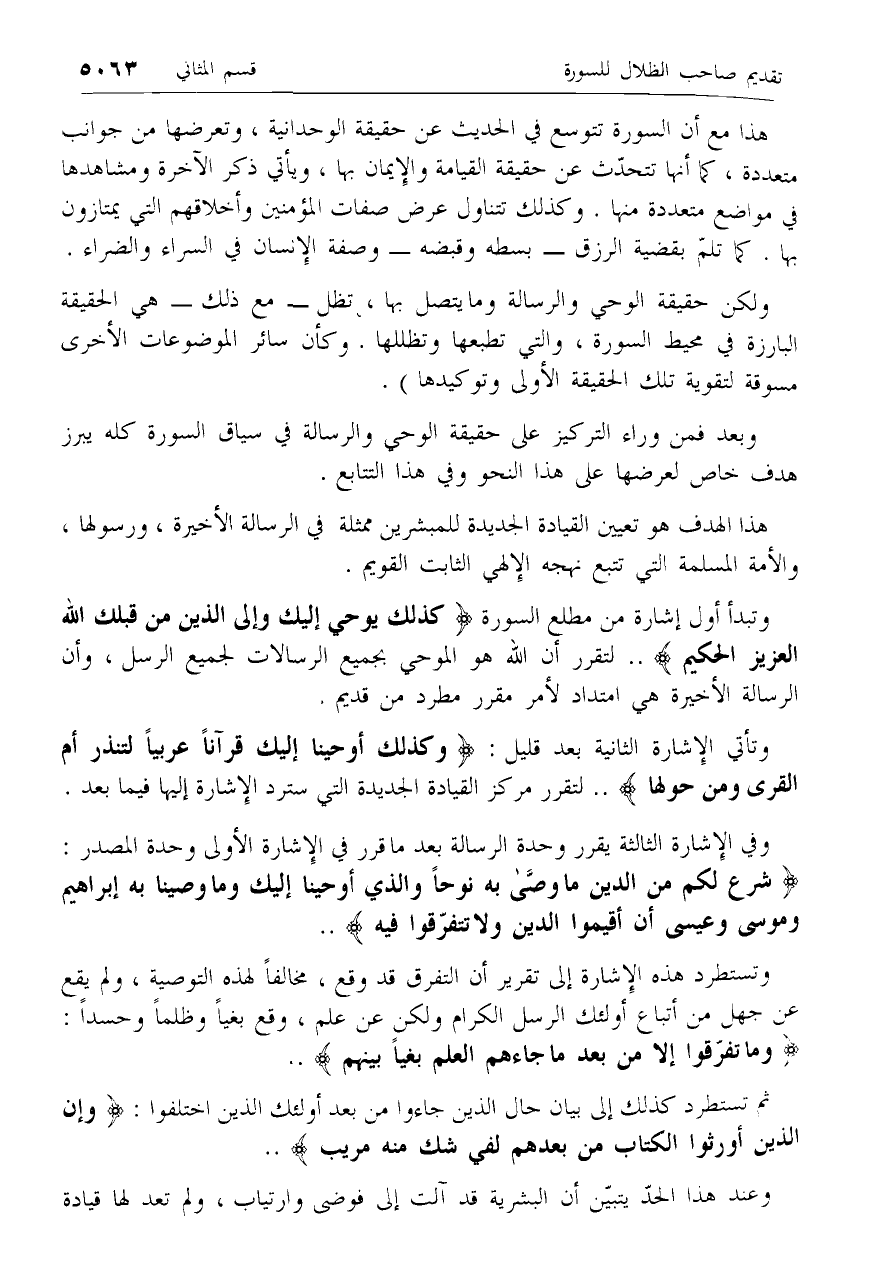 تقديم صاحب الظلال للسورة قسم المثاني ٥٠٦٣
هذا مع أن السورة تتوسع في الحديث عن حقيقة الوحدانية ، وتعرضها من جوانب
متعددة ، كما أنها تتحدّث عن حقيقة القيامة والإيمان بها ، ويأتي ذكر الآخرة ومشاهدها
في مواضع متعددة منها . وكذلك تتناول عرض صفات المؤمنين وأخلاقهم التي يمتازون
بها . كما تلمّ بقضية الرزق — بسطه وقبضه — وصفة الإنسان في السراء والضراء .
ولكن حقيقة الوحي والرسالة وما يتصل بها ، تظل — مع ذلك — هي الحقيقة
البارزة في محيط السورة ، والتي تطبعها وتظللها . وكأن سائر الموضوعات الأخرى
مسوقة لتقوية تلك الحقيقة الأولى وتوكيدها ) .
وبعد فمن وراء التركيز على حقيقة الوحي والرسالة في سياق السورة كله يبرز
هدف خاص لعرضها على هذا النحو وفي هذا التتابع .
هذا الهدف هو تعيين القيادة الجديدة للمبشرين ممثلة في الرسالة الأخيرة ، ورسولها ،
والأمة المسلمة التي تتبع نهجه الإلهي الثابت القويم .
وتبدأ أول إشارة من مطلع السورة ﴿ كذلك يوحي إليك وإلى الذين من قبلك الله
العزيز الحكيم ﴾ .. لتقرر أن الله هو الموحي بجميع الرسالات لجميع الرسل ، وأن
الرسالة الأخيرة هي امتداد لأمر مقرر مطرد من قديم .
وتأتي الإشارة الثانية بعد قليل : ﴿ وكذلك أوحينا إليك قرآناً عربياً لتنذر أم
القرى ومن حولها ﴾ .. لتقرر مركز القيادة الجديدة التي سترد الإشارة إليها فيما بعد .
وفي الإشارة الثالثة يقرر وحدة الرسالة بعد ماقرر في الإشارة الأولى وحدة المصدر :
﴿ شرع لكم من الدين ماوصَّىٰ به نوحاً والذي أوحينا إليك وماوصينا به إبراهيم
وموسى وعيسى أن أقيموا الدين ولاتتفرّقوا فيه ﴾ ..
وتستطرد هذه الإشارة إلى تقرير أن التفرق قد وقع ، مخالفاً لهذه التوصية ، ولم يقع
عن جهل من أتباع أولئك الرسل الكرام ولكن عن علم ، وقع بغياً وظلماً وحسداً :
﴿ وماتفرّقوا إلا من بعد ماجاءهم العلم بغياً بينهم ﴾ ..
ثم تستطرد كذلك إلى بيان حال الذين جاءوا من بعد أولئك الذين اختلفوا : ﴿ وإن
الذين أورثوا الكتاب من بعدهم لفي شك منه مريب ﴾ ..
وعند هذا الحدّ يتبيّن أن البشرية قد آلت إلى فوضى وارتياب ، ولم تعد لها قيادة